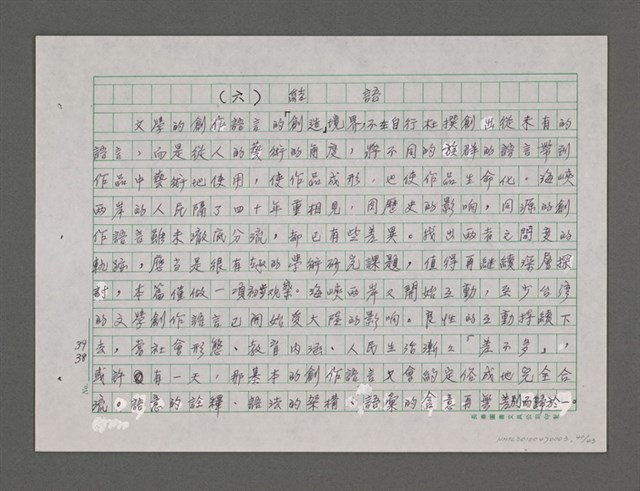 （六） 結 語
文學的創作語言的「創造」境界，不在自行杜撰創出從未有的
語言，而是從人的藝術的角度，將不同的族群的語言帶到
作品中藝術地使用，使作品成形，也使作品生命化。海峽
兩岸的人民隔了四十年重相見，因歷史的影響，同源的創
作語言雖未澈底分流，卻已有些差異。找出兩者之間異的
軌跡，應當是很有趣的學術研究課題，值得再繼續深層探
討，本篇僅做一項初步觀察。海峽兩岸又開始互動，至少台灣
的文學創作語言已開始受大陸的影響。良性的互動持續下
去，當社會形態、教育內涵、人民生活漸久「差不多」，
或許有一天，那基本的創作語言又會約定俗成地完全合
流。語意的詮釋、語法的架構、語彙的含意再無差別而歸於一。
39
38
No.